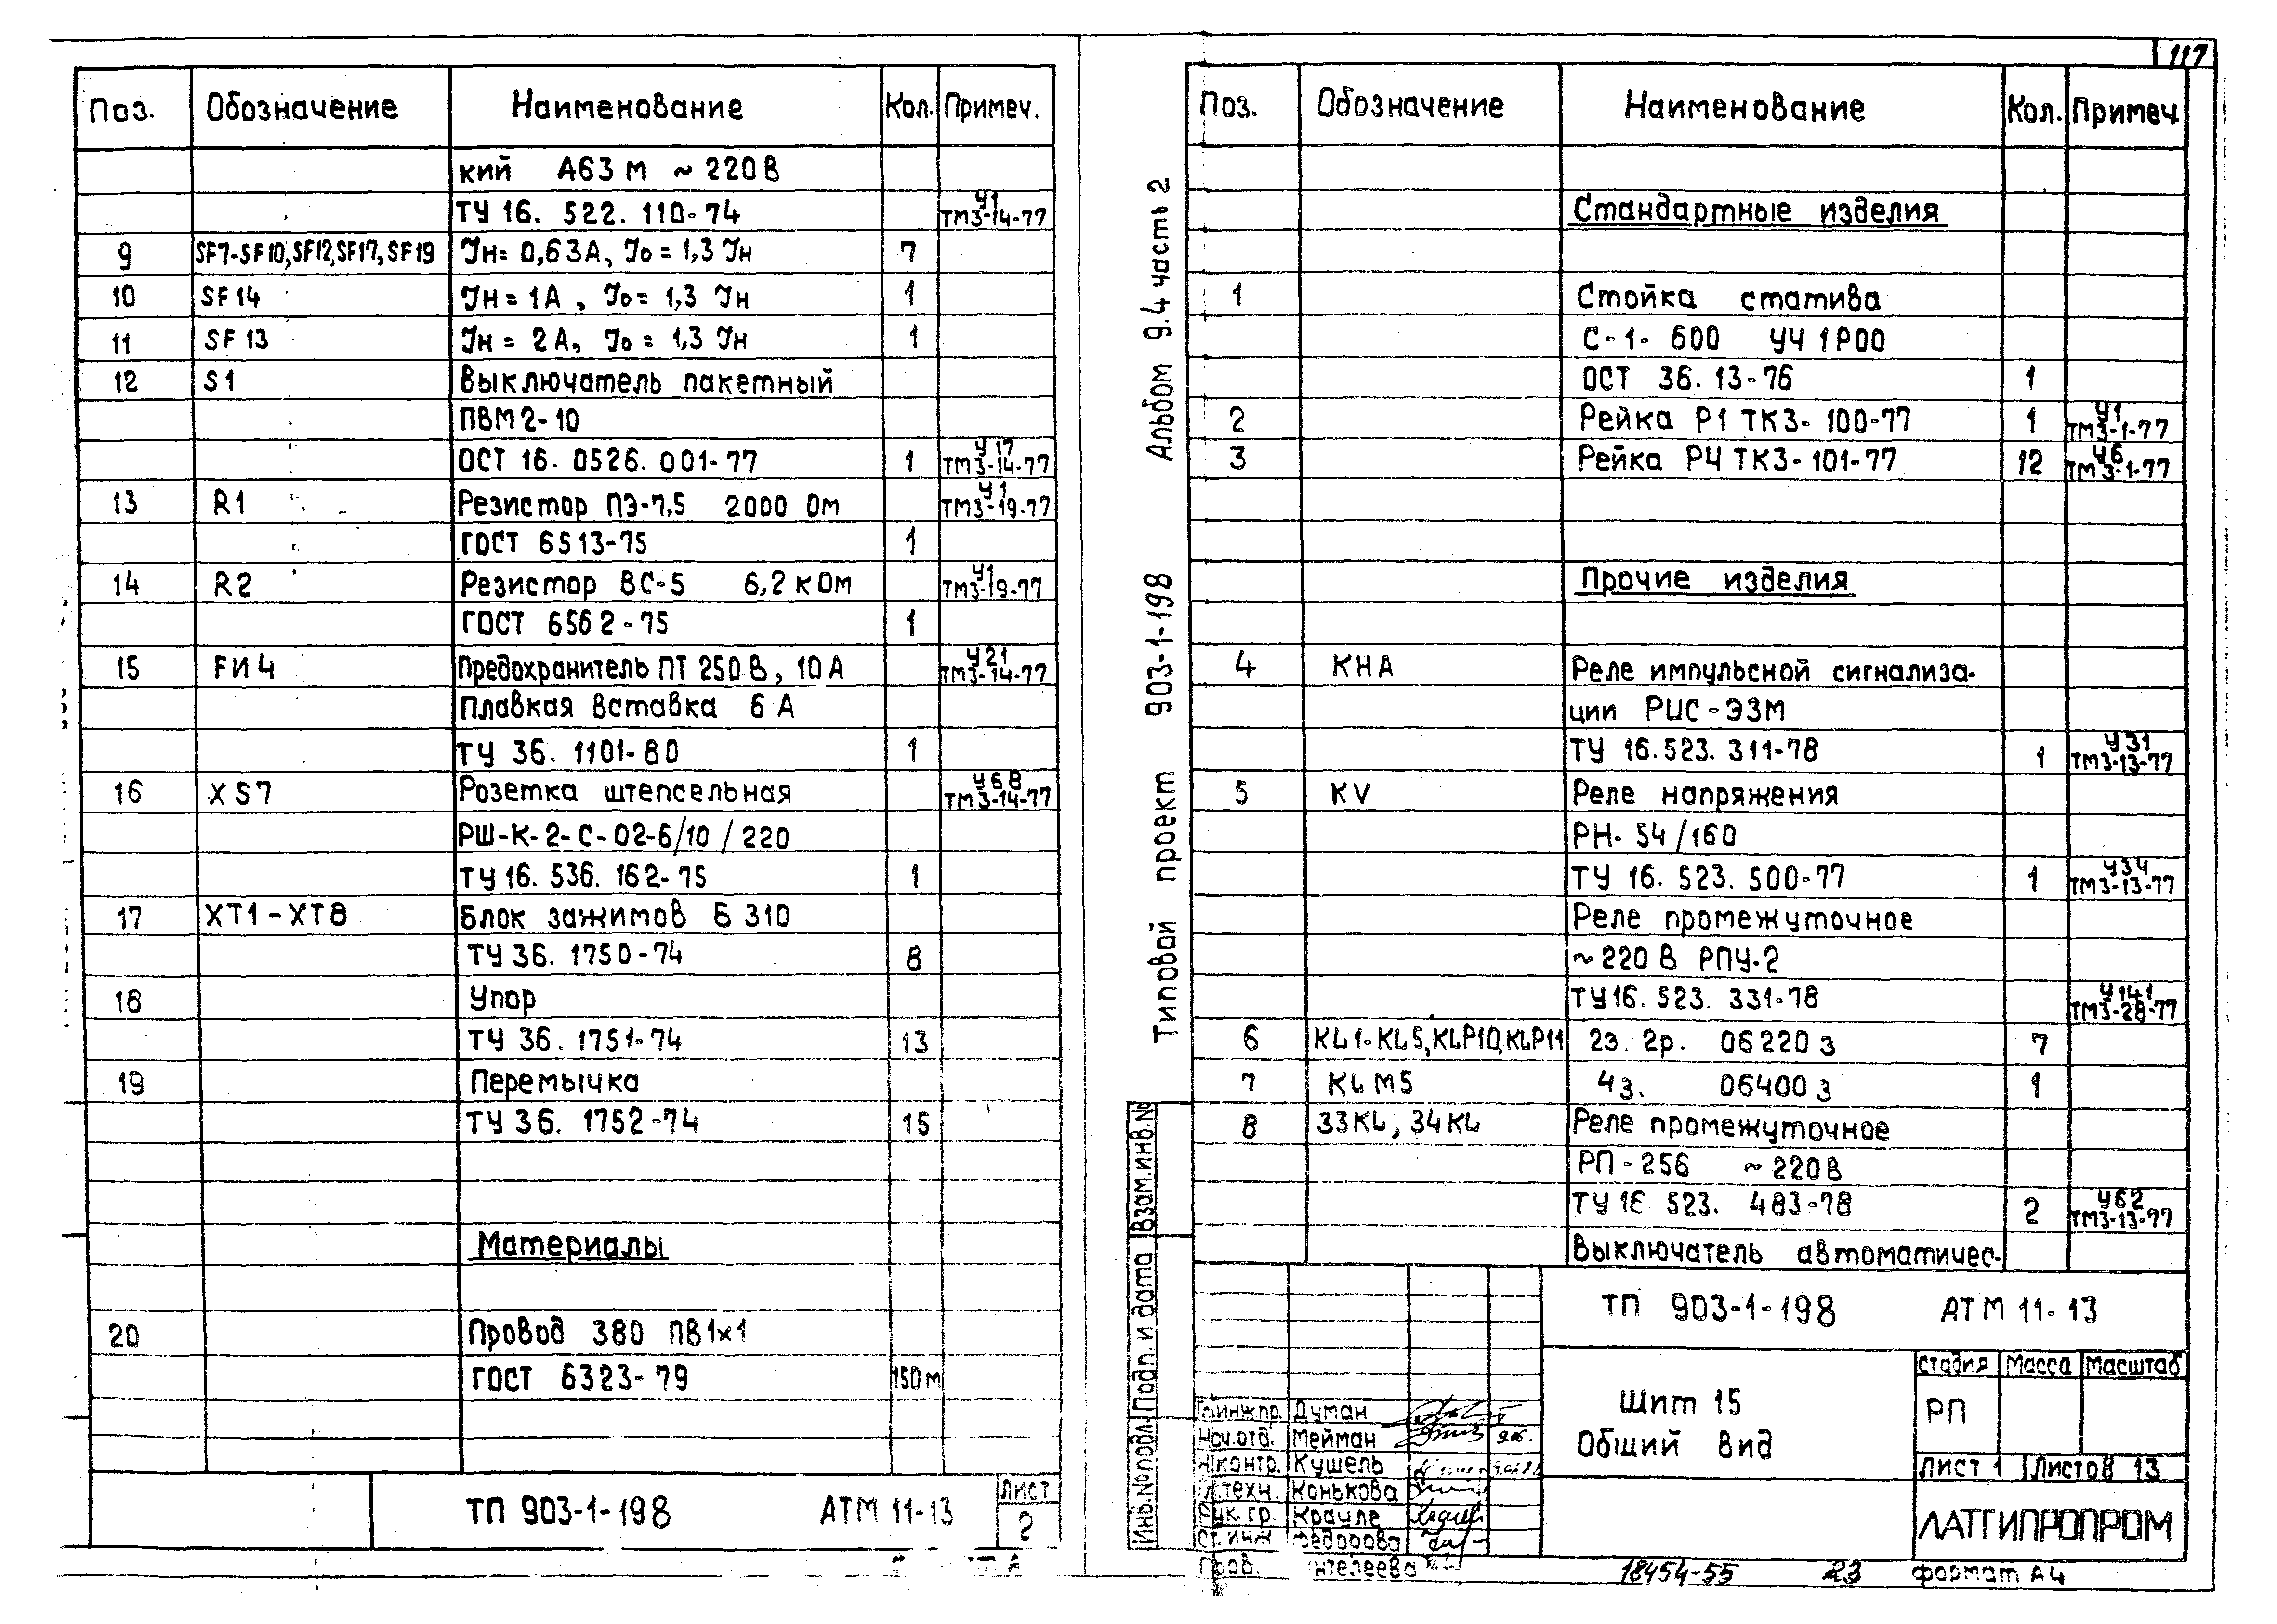 117
Поз. Обозначение Наименование Кол. Примеч.
кий А63М ~220В
ТУ 16. 522. 110-74 У1 ТМ3-14-77
9 SF7-SF10, SF12, SF17, SF19 Iн= 0,63А, Iо = 1,3 Iн 7
10 SF14 Iн = 1А, Iо = 1,3 Iн 1
11 SF13 Iн = 2А, Iо = 1,3 Iн 1
12 S1 Выключатель пакетный
ПВМ2-10
ОСТ 16. 0526. 001-77 1 У17 ТМ3-14-77
13 R1 Резистор ПЭ-7,5 2000 Ом У1 ТМ3-19-77
ГОСТ 6513-75 1
14 R2 Резистор ВС-5 6,2 кОм У1 ТМ3-19-77
ГОСТ 6562-75 1
15 FИ4 Предохранитель ПТ 250В, 10А У21 ТМ3-14-77
Плавкая вставка 6А
ТУ 36. 1101-80 1
16 XS7 Розетка штепсельная У68 ТМ3-14-77
РШ-К-2-С-02-6/10/220
ТУ 16. 536. 162-75 1
17 XT1-XT8 Блок зажимов Б310
ТУ 36. 1750-74 8
18 Упор
ТУ 36. 1751-74 13
19 Перемычка
ТУ 36. 1752-74 15
Материалы
20 Провод 380 ПВ1х1
ГОСТ 6323-79 150м
ТП 903-1-198 АТМ 11-13 Лист 2
Типовой проект 903-1-198 Альбом 9.4 часть 2
Поз. Обозначение Наименование Кол. Примеч.
Стандартные изделия
1 Стойка статива
С-1-600 УЧ 1Р00
ОСТ 36. 13-76 1
2 Рейка Р1 ТК3-100-77 1 У1 ТМ3-1-77
3 Рейка РЧ ТК3-101-77 12 У6 ТМ3-1-77
Прочие изделия
4 КНА Реле импульсной сигнализа-
ции РИС-Э3М
ТУ 16.523. 311-78 1 У31 ТМ3-13-77
5 KV Реле напряжения
РН-54/160
ТУ 16. 523. 500-77 1 У34 ТМ3-13-77
Реле промежуточное
~220 В РПУ-2
ТУ16. 523. 331-78 У141 ТМ3-28-77
6 KL1-KL5, KLP10, KLP11 2з. 2р. 06220 3 7
7 KLM5 4з. 06400 3 1
8 33KL, 34KL Реле промежуточное
РП-256 ~220В
ТУ 16 523. 483-78 2 У62 ТМ3-13-77
Выключатель автоматичес-
Инв.№подл. Подп. и дата Взам.инв.№
ТП 903-1-198 АТМ 11-13
Щит 15
Общий вид
стадия Масса Масштаб
РП
Лист 1 Листов 13
ЛАТГИПРОПРОМ
Гл.инж.пр. Думан
Нач.отд. Мейман
Н.контр. Кушель
Гл.техн. Конькова
Рук. гр. Крауле
Ст. инж Федорова
Пров.
18454-55 23 формат А4